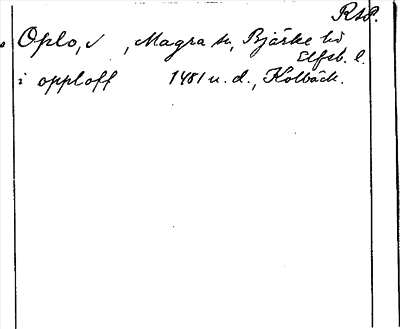 RAP.
Oplo, v , Magra sn, Bjärke hd
Elfsb. l.
i opploff 1481 u. d., Kolbäck.